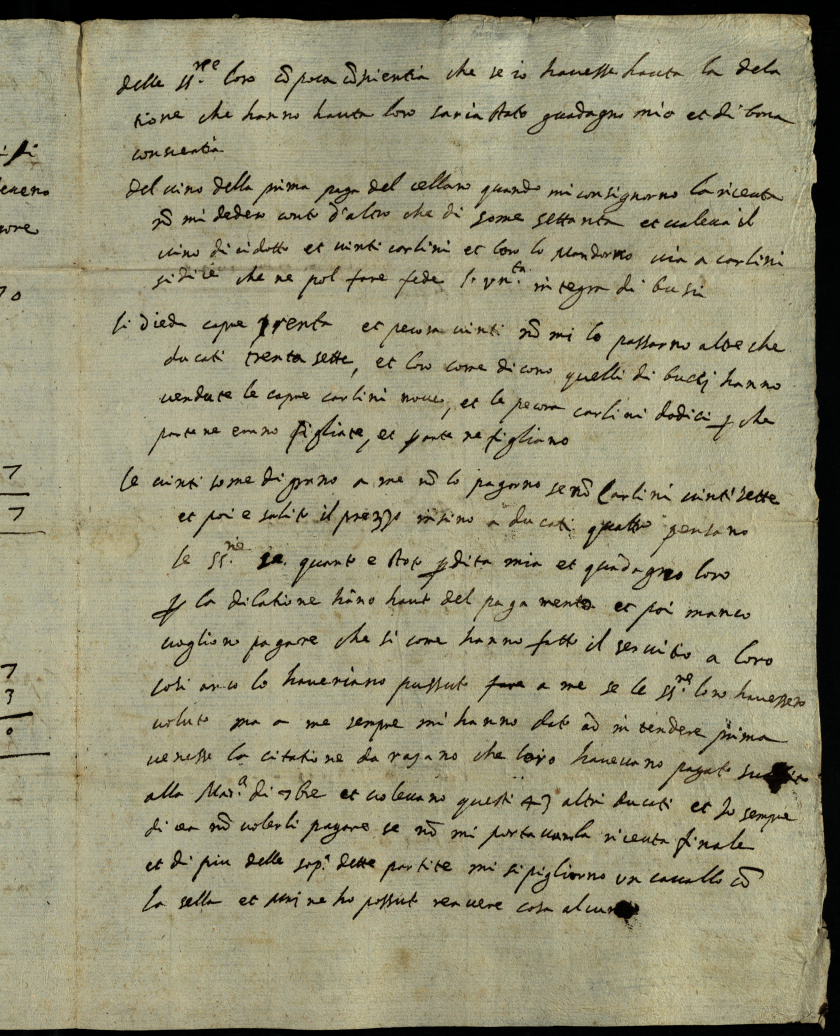 delle ss.rie loro cō poca cōsientia che se io havesse hauta la dela
tione che hanno hauta loro saria stato guadagno mio et di bona
consientia
del vino della prima paga del cellaro quando mi consignorno la riceuta
nō mi dedero conto d'altro che di some settanta et valeva il
vino di cidotto et vinti carlini et loro lo mandorno via a carlini
sidici che ne pol fare fede l'un.ta integra di busi
li diedi capre trenta et pecora vinti nō mi lo passarno altro che
ducati trenta sette, et loro come dicono quelli di bucij hanno
vendute le capre carlini nove, et le pecora carlini dodici ꝑ che
parte ne erano figliate, et parte ne figliano
le vinti some di grano a me nō lo pagorno se nō Carlini vinti sette
et poi e salito il prezzo insino a ducati quatto pensano
le ss.rie quanto e stato ꝑdita mia et guadagno loro
ꝑ la dilatione hāno haut del pagamento et poi manco
vogliono pagare che si come hanno fatto il servitio a loro
cosi anco lo haveriano possuto fare a me se le ss.rie loro havessero
voluto ma a me sempre mi hanno dato ad intendere prima
venesse la citatione da rajano che loro havevano pagato subito
alla Mad.a di 7bre et volevano questi 47 altri ducati et Io sempre
dicea nō volerli pagare se nō mi portavan la riceuta finale
et di piu delle sop.a dette partite mi si pigliorno un cavallo cō
la sella et mai ne ho possuto rehavere cosa alcuna
7
7
7
3
0